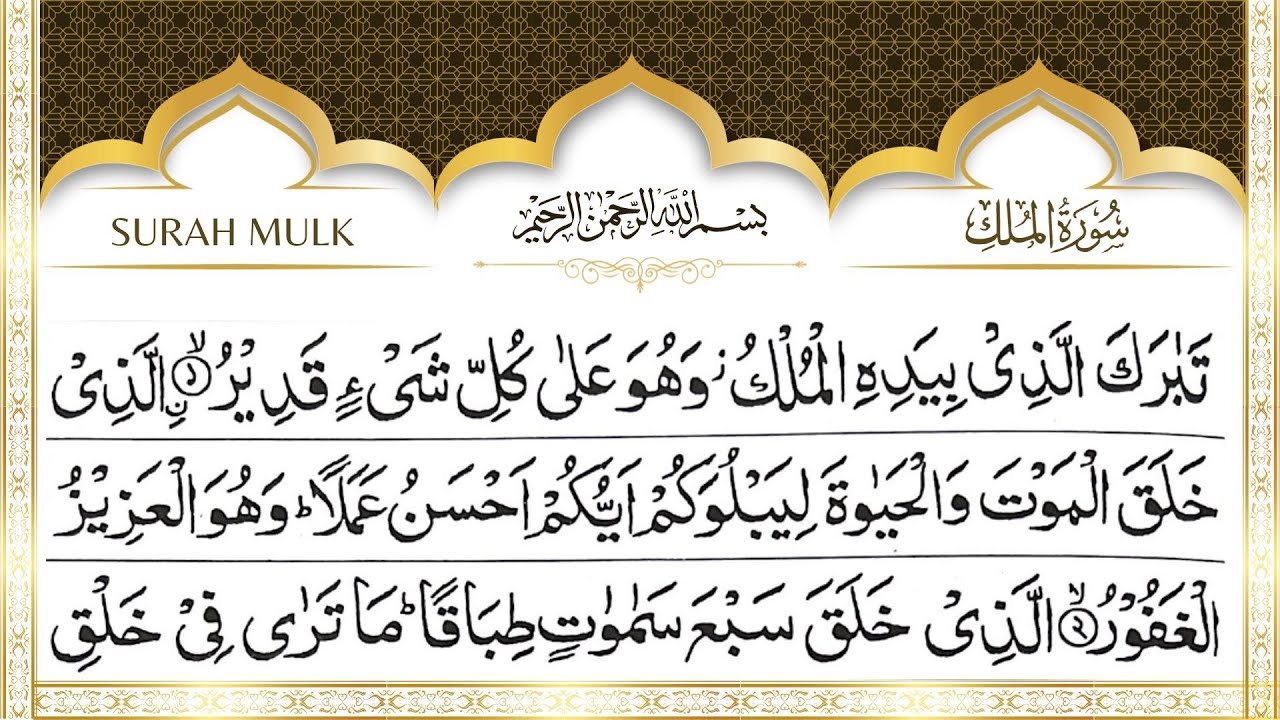 SURAH MULK
بِسْمِ اللهِ الرَّحْمٰنِ الرَّحِيْمِ
سُورَةُ الْمُلْكِ
تَبٰرَكَ الَّذِىْ بِيَدِهِ الْمُلْكُ ز وَهُوَ عَلٰى كُلِّ شَىْءٍ قَدِيْرُ ۙ‏﴿۱﴾ ۨالَّذِىْ
خَلَقَ الْمَوْتَ وَالْحَيٰوةَ لِيَبْلُوَكُمْ اَيُّكُمْ اَحْسَنُ عَمَلًا ؕ وَهُوَ الْعَزِيْزُ
الْغَفُوْرُ ۙ‏﴿۲﴾ الَّذِىْ خَلَقَ سَبْعَ سَمٰوٰتٍ طِبَاقًا ؕ مَا تَرٰى فِىْ خَلْقِ